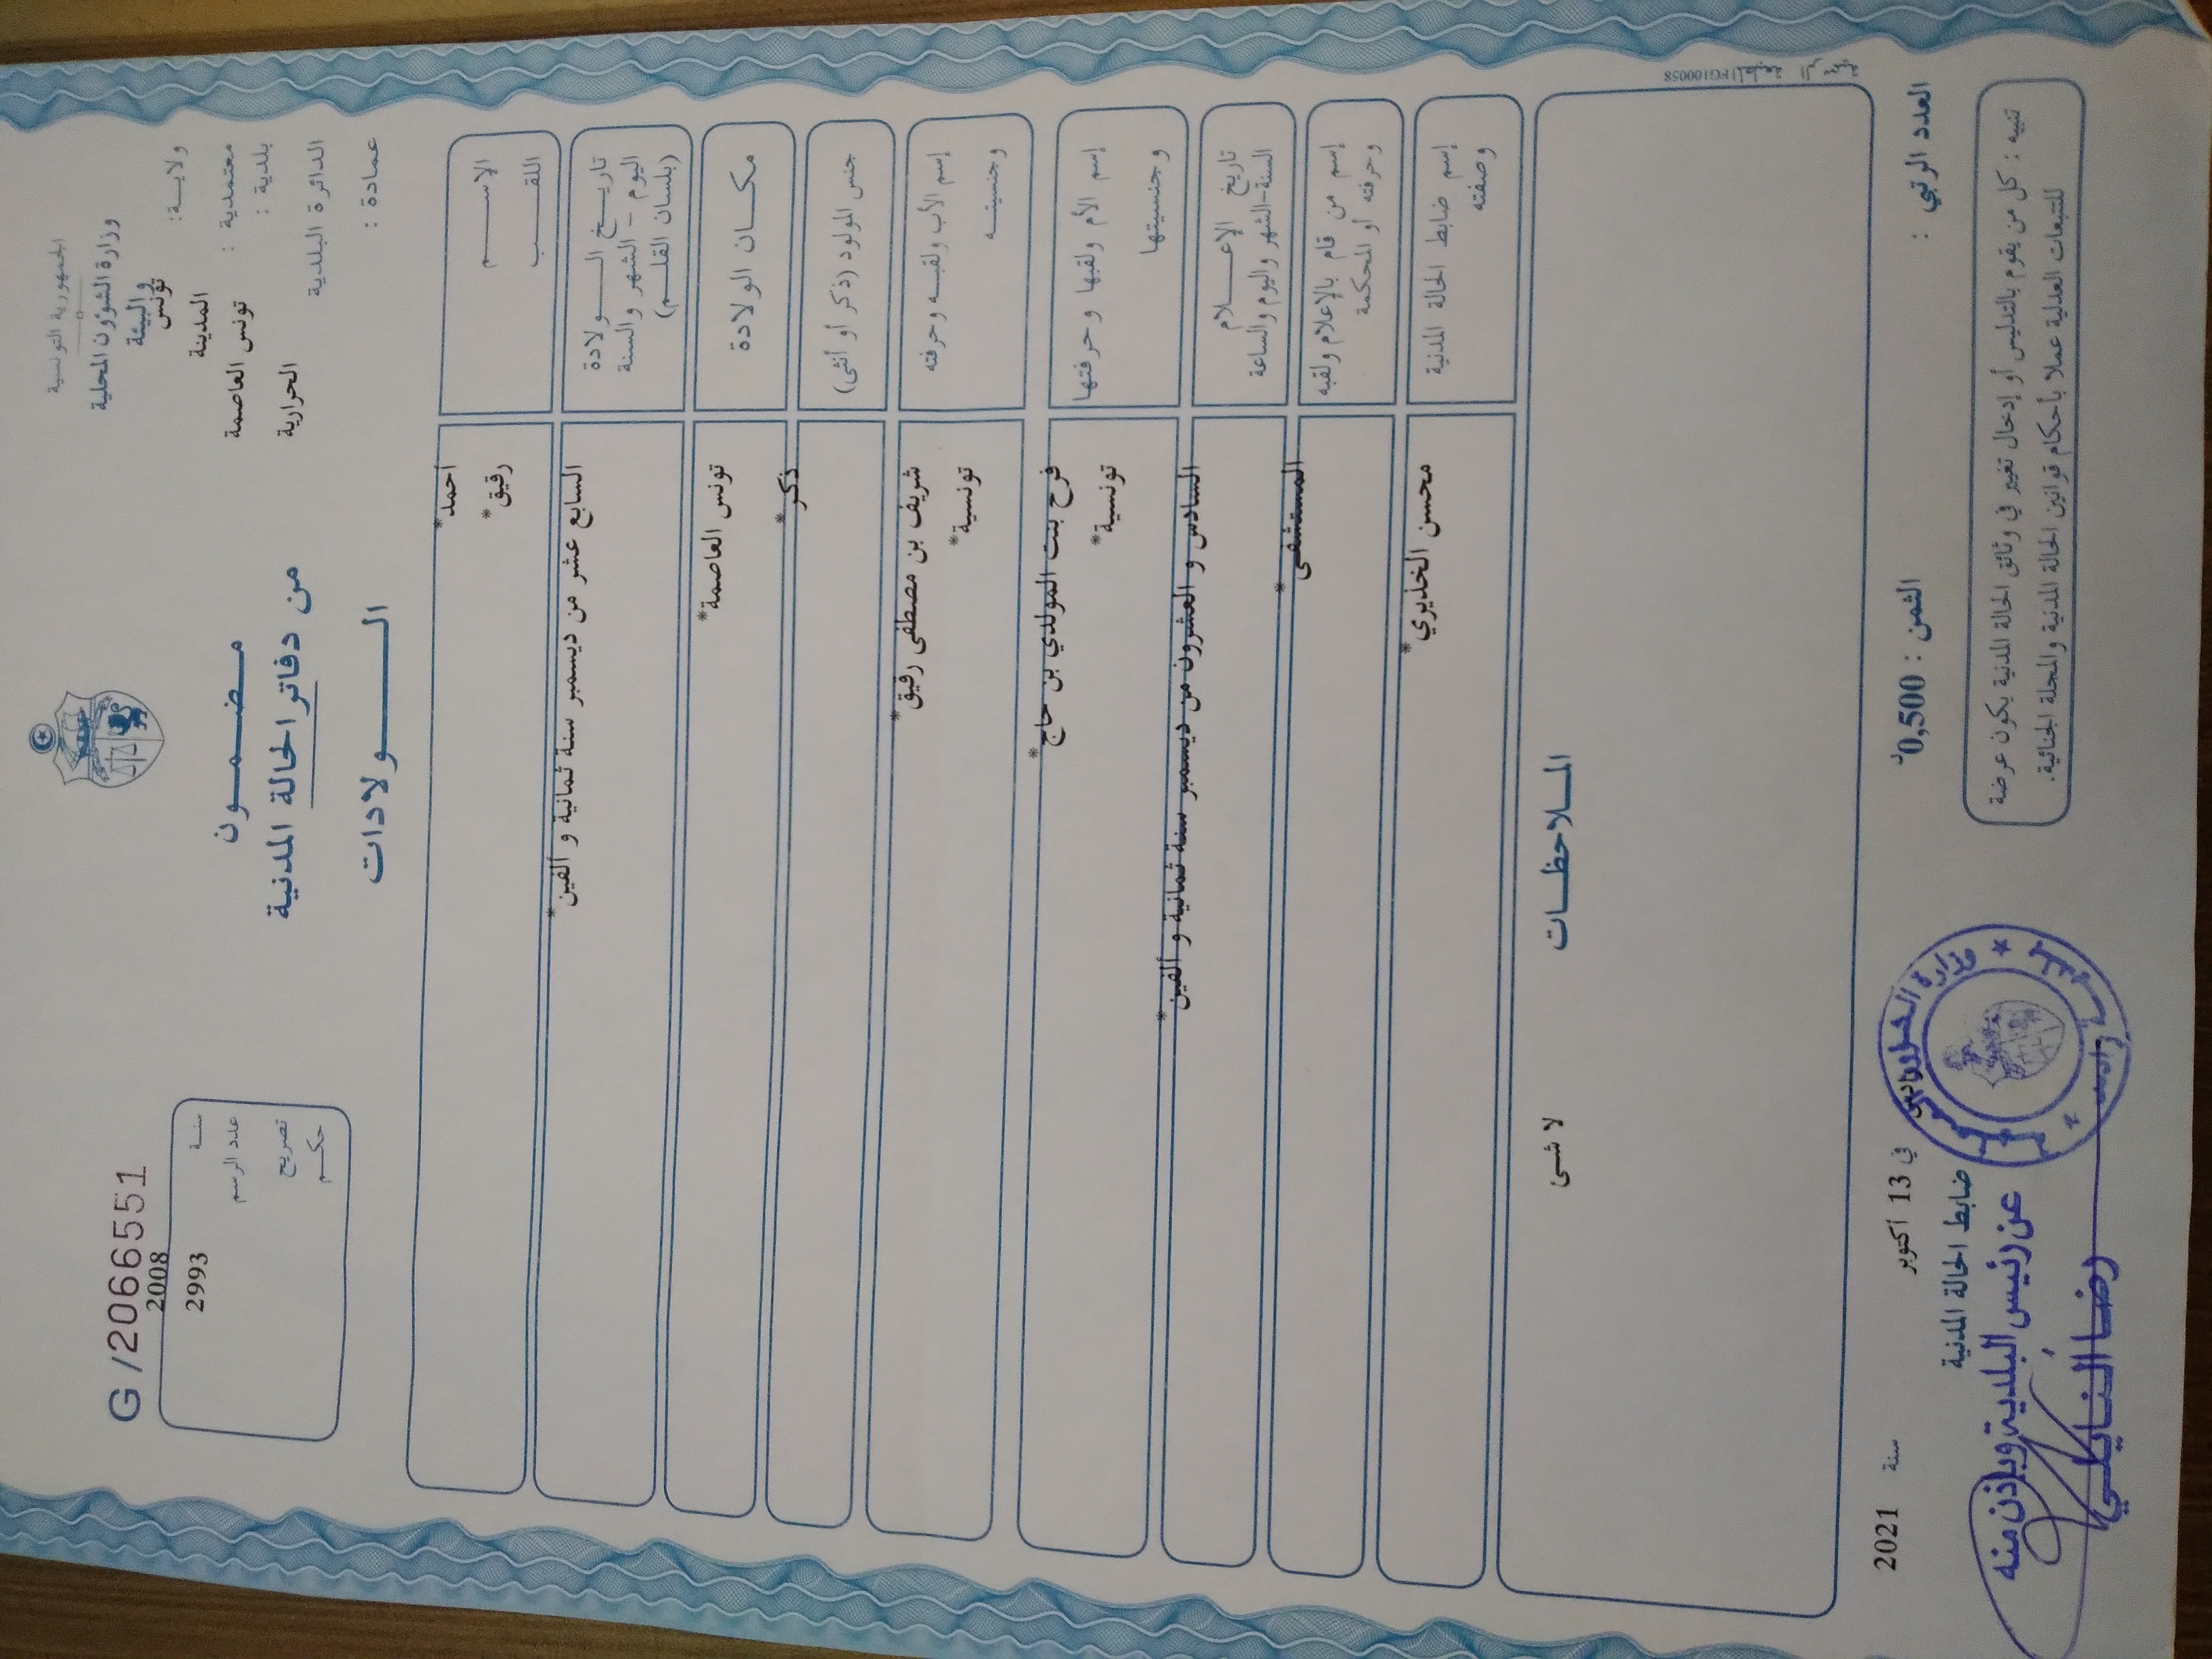 الجمهورية التونسية
وزارة الشؤون المحلية
والبيئة
ولايــة: تونس
معتمدية : المدينة
بلدية : تونس العاصمة
الدائرة البلدية الحرارية
عمادة :
G /2066551
سنــة 2008
عدد الرسم 2993
تصريح
حكـم
مـضـمـون
من دفاتر الحالة المدنية
الـولادات
الإســم أحمد*
اللقـب رفيق*
تاريـخ الـولادة
اليوم - الشهر والسنة
(بلسان القلـم)
السابع عشر من ديسمبر سنة ثمانية و ألفين*
مكـان الولادة تونس العاصمة*
جنس المولود (ذكر أو أنثى) ذكر*
إسم الأب ولقبـه وحرفته شريف بن مصطفى رفيق*
وجنسيتـه تونسية*
إسم الأم ولقبها وحرفتها فرح بنت المولدي بن حاج*
وجنسيتها تونسية*
تاريخ الإعـلام
السنة-الشهر واليوم والساعة
السادس و العشرون من ديسمبر سنة ثمانية و ألفين*
إسم من قام بالإعلام ولقبه
وحرفته أو المحكمة
المستشفى*
إسم ضابط الحالة المدنية
وصفته
محسن الخذيري*
المـلاحظـات
لا شى
FG100058
العدد الرتبي :
الثمن : 0,500د
في 13 أكتوبر سنة 2021
ضابط الحالة المدنية
عن رئيس البلدية وبإذن منه
تنبيه : كل من يقوم بالتدليس أو إدخال تغيير في وثائق الحالة المدنية يكون عرضة
للتتبعات العدلية عملا بأحكام قوانين الحالة المدنية والمجلة الجنائية.